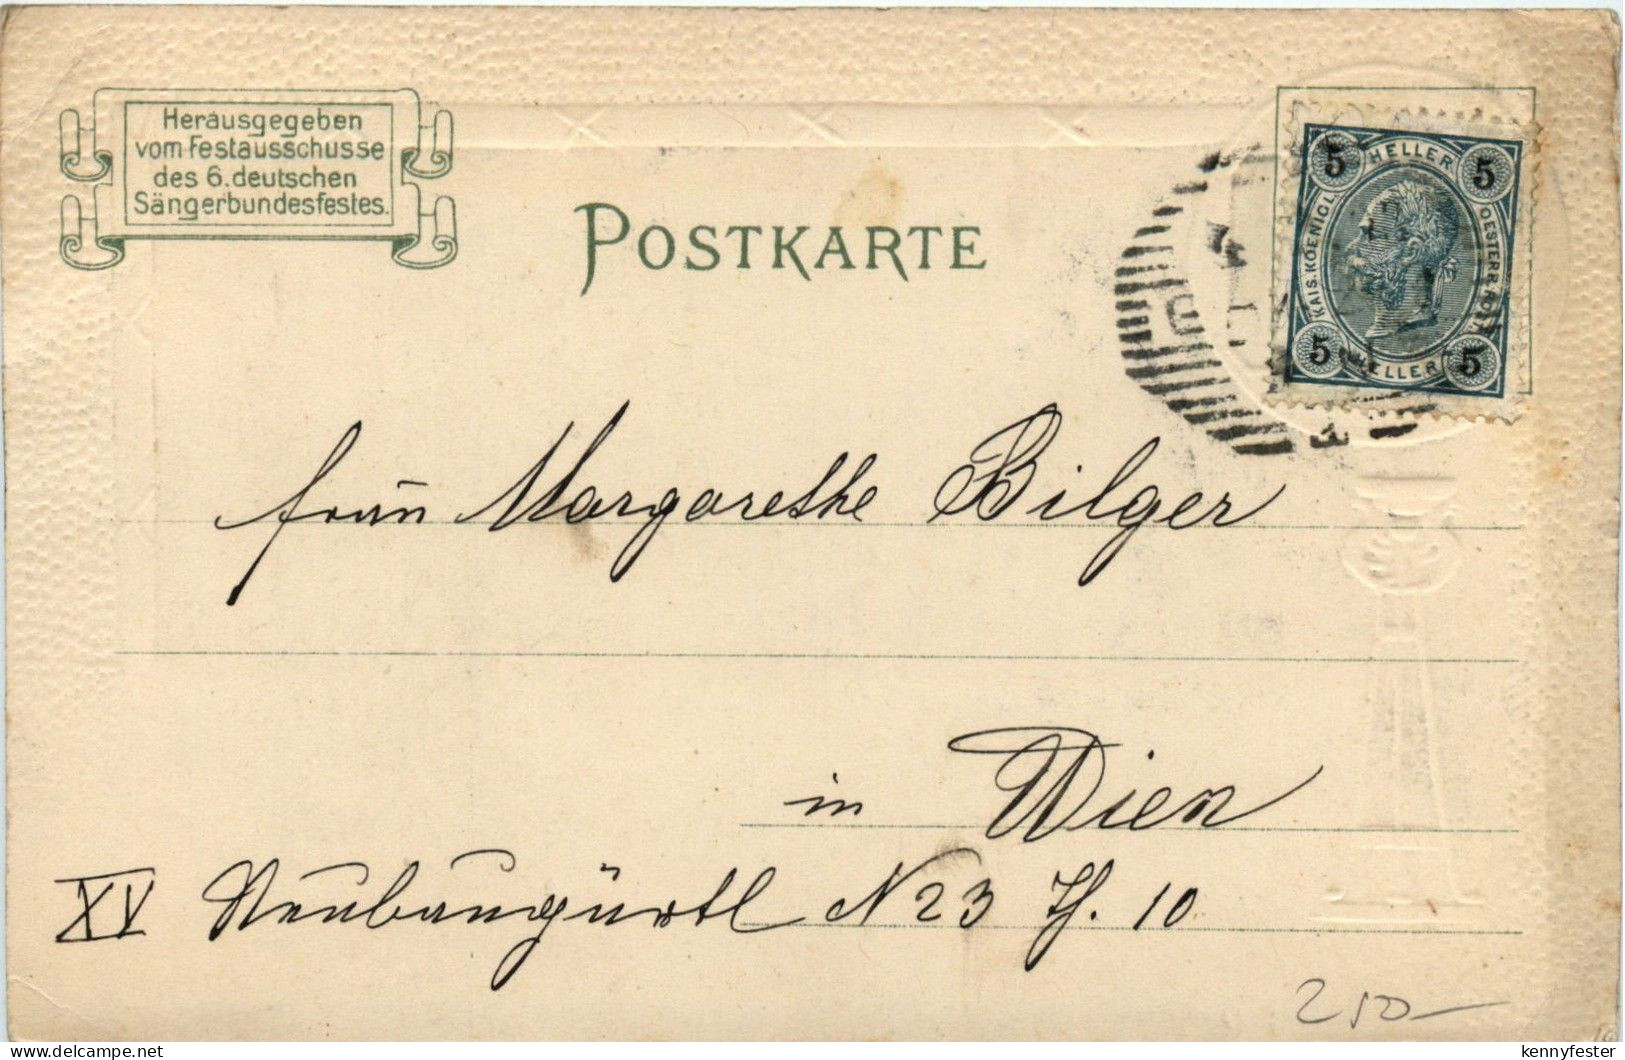 Herausgegeben
vom Festausschusse
des 6. deutschen
Sängerbundesfestes.
POSTKARTE
5 HELLER 5
KAIS. KOENIGL. OESTERR. POST.
5 HELLER 5
fraün Margarethe Bilger
in Wien
XV Neubaugürtl N 23 Th. 10
250-
kennyfester